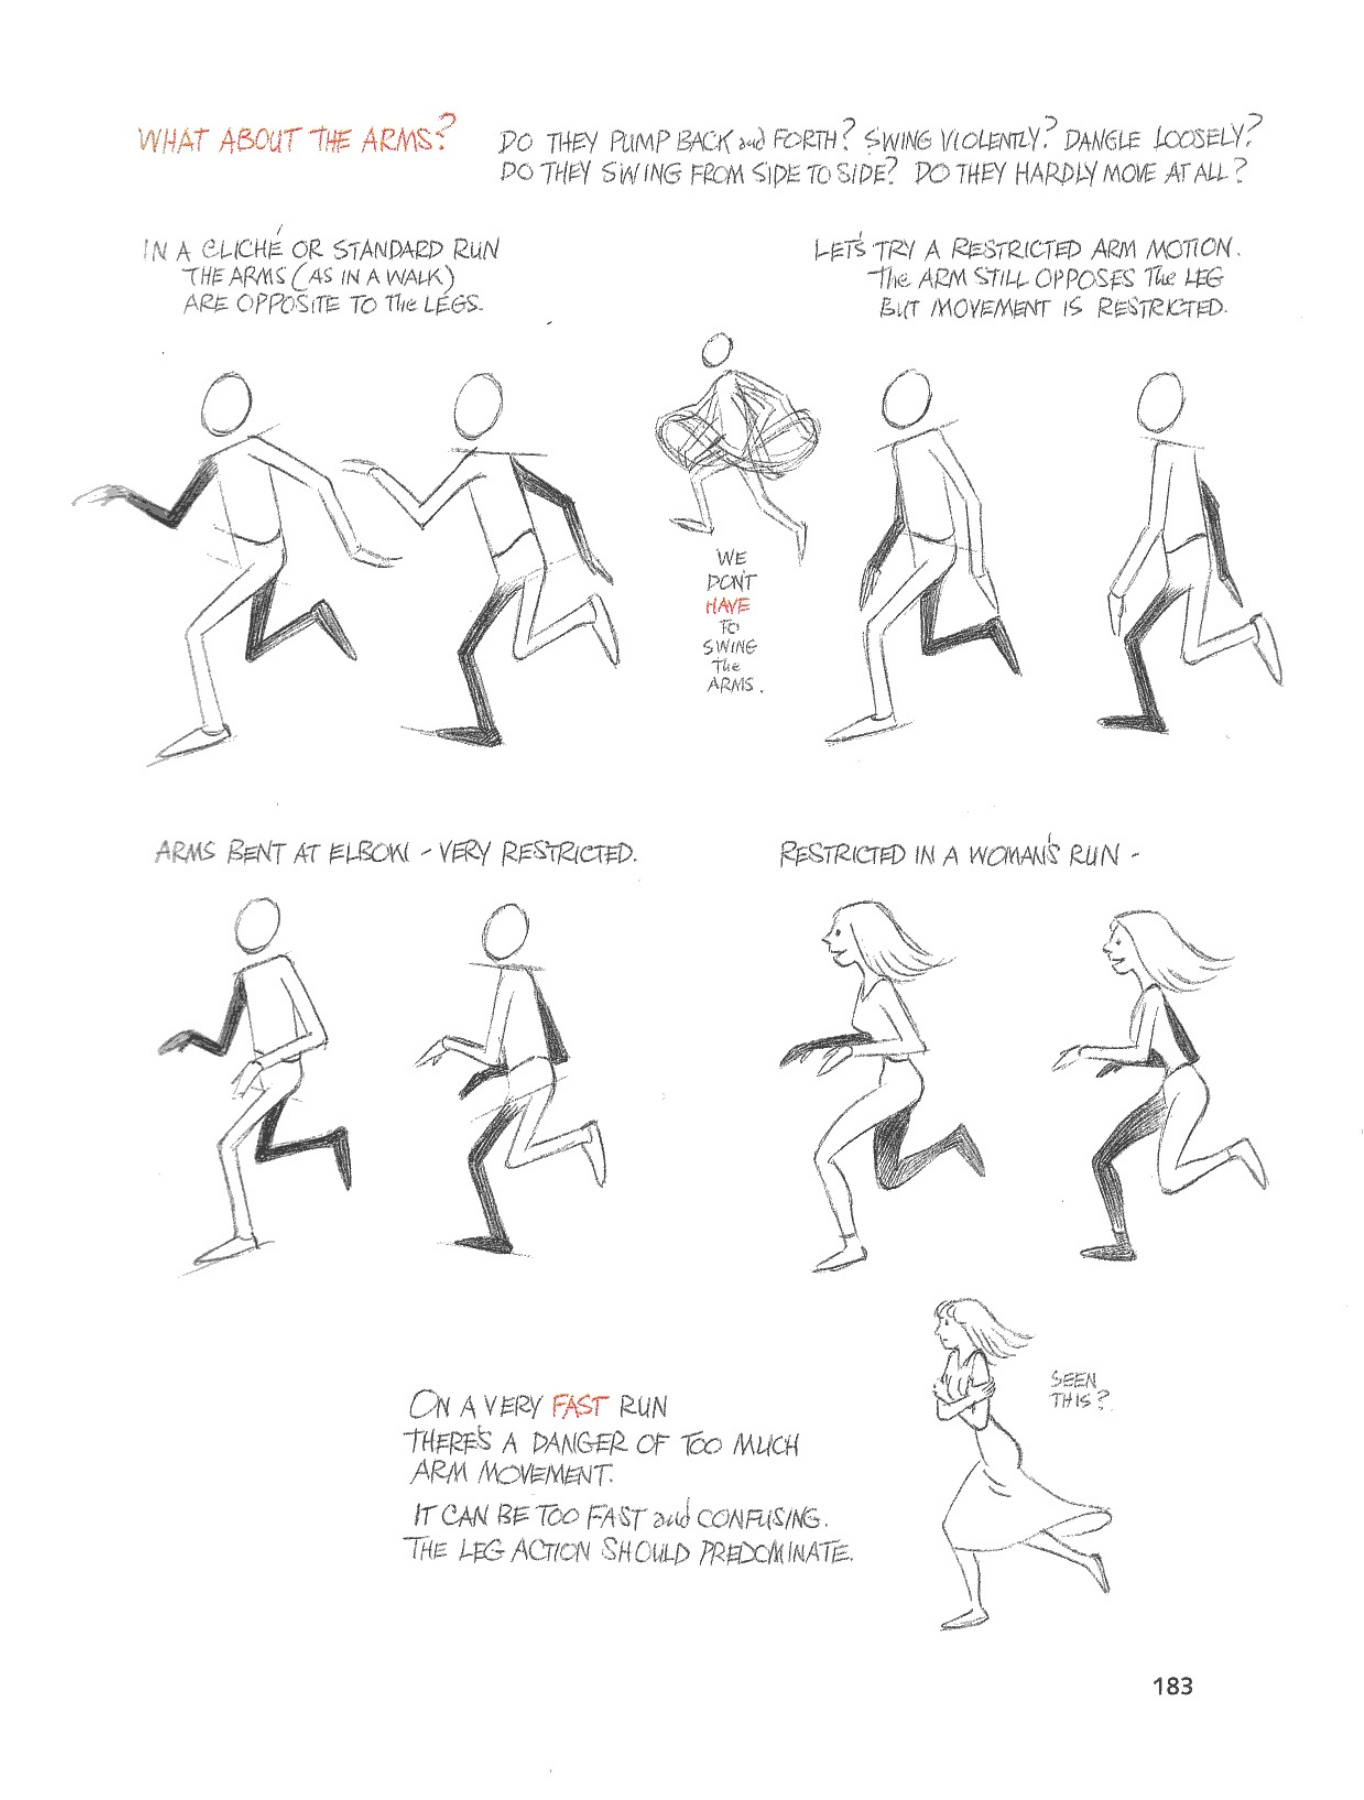 WHAT ABOUT THE ARMS?
DO THEY PUMP BACK and FORTH? SWING VIOLENTLY? DANGLE LOOSELY?
DO THEY SWING FROM SIDE TO SIDE? DO THEY HARDLY MOVE AT ALL?
IN A CLICHÉ OR STANDARD RUN
THE ARMS (AS IN A WALK)
ARE OPPOSITE TO The LEGS.
LET'S TRY A RESTRICTED ARM MOTION.
The ARM STILL OPPOSES The LEG
BUT MOVEMENT IS RESTRICTED.
WE
DON'T
HAVE
TO
SWING
The
ARMS.
ARMS BENT AT ELBOW - VERY RESTRICTED.
RESTRICTED IN A WOMAN'S RUN -
ON A VERY FAST RUN
THERE'S A DANGER OF TOO MUCH
ARM MOVEMENT.
IT CAN BE TOO FAST and CONFUSING.
THE LEG ACTION SHOULD PREDOMINATE.
SEEN
THIS?
183